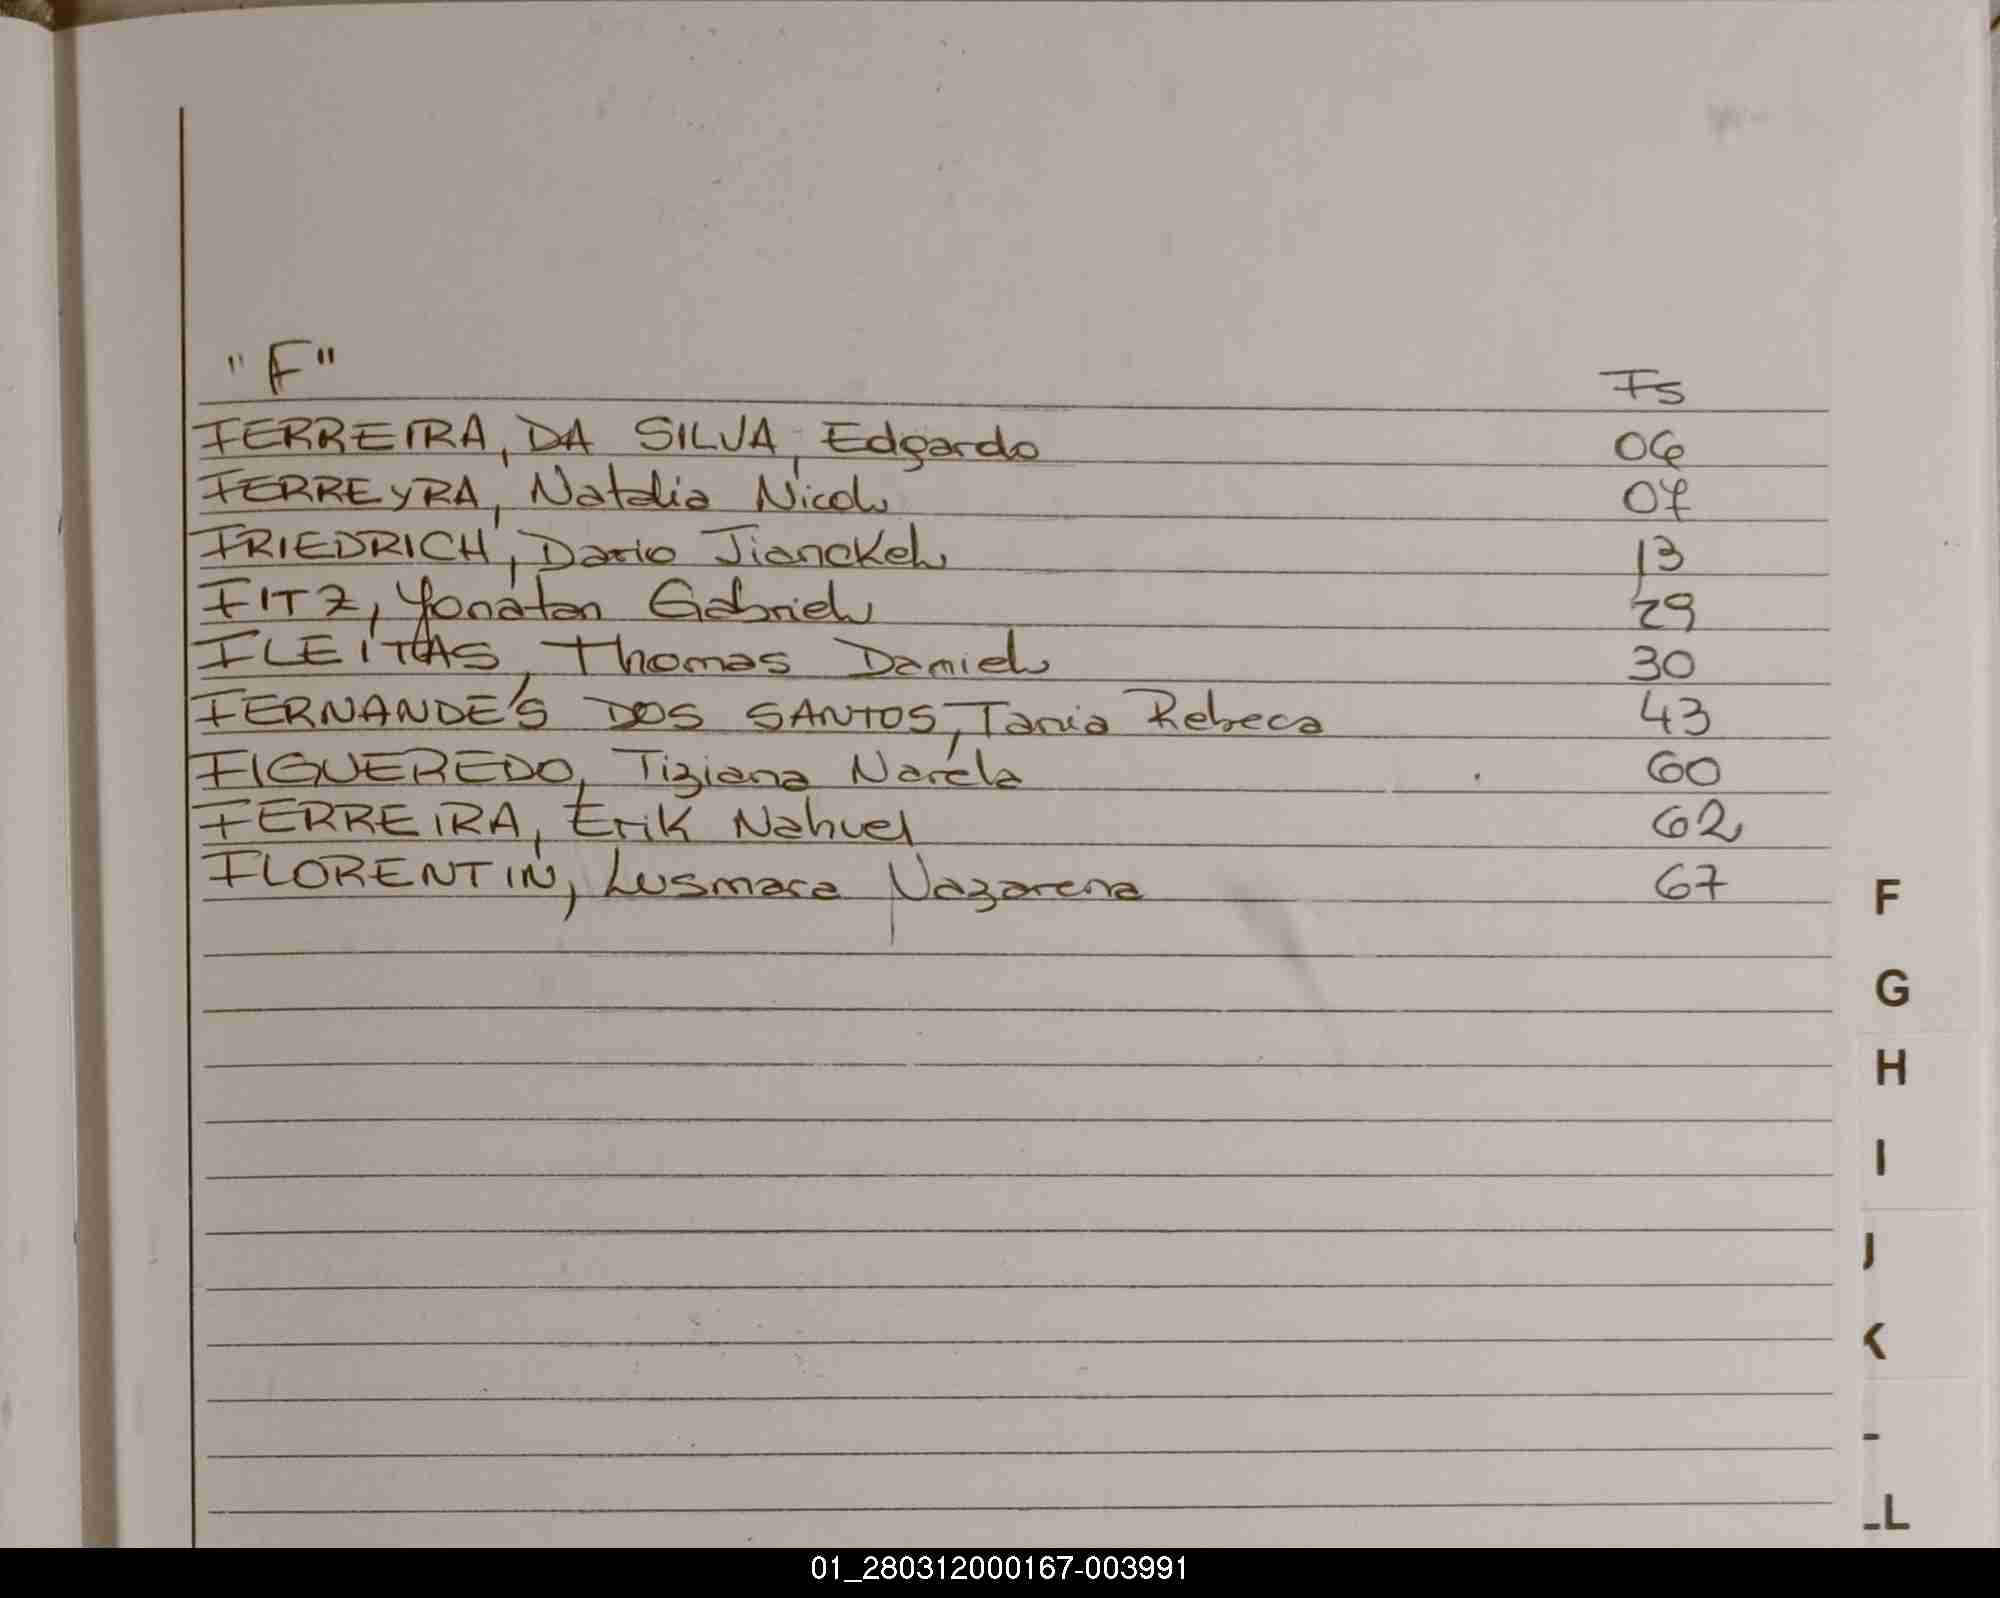 "F"
Fs
FERREIRA, DA SILVA, Edgardo 06
FERREYRA, Natalia Nicol 07
FRIEDRICH, Dario Jianckel 13
FITZ, Yonatan Gabriel 29
FLEITAS, Thomas Daniel 30
FERNANDE'S DOS SANTOS, Tania Rebeca 43
FIGUEREDO, Tiziana Narela 60
FERREIRA, Erik Nahuel 62
FLORENTIN, Lusmara Nazarena 67
F
G
H
I
J
K
-
-L
01_280312000167-003991